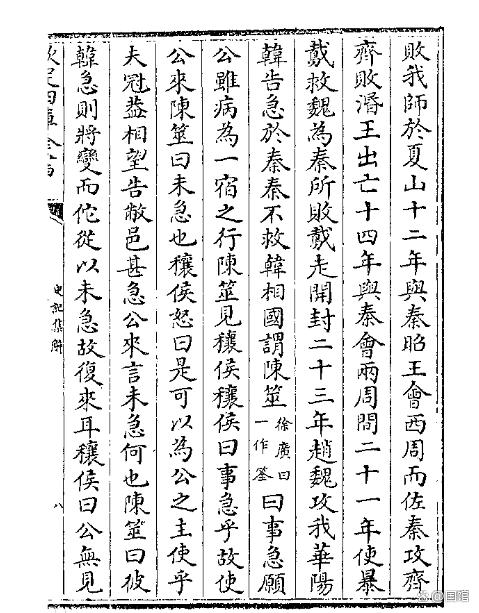 敗我師於夏山十二年與秦昭王會西周而佐秦攻齊
齊敗湣王出亡十四年與秦會兩周間二十一年使暴
戴救魏為秦所敗戴走開封二十三年趙魏攻我華陽
韓告急於秦秦不救韓相國謂陳筮徐廣曰一作荃曰事急願
公雖病為一宿之行陳筮見穰侯穰侯曰事急乎故使
公來陳筮曰未急也穰侯怒曰是可以為公之主使乎
夫冠蓋相望告敝邑甚急公來言未急何也陳筮曰彼
韓急則將變而佗從以未急故復來耳穰侯曰公無見
史記集解
八